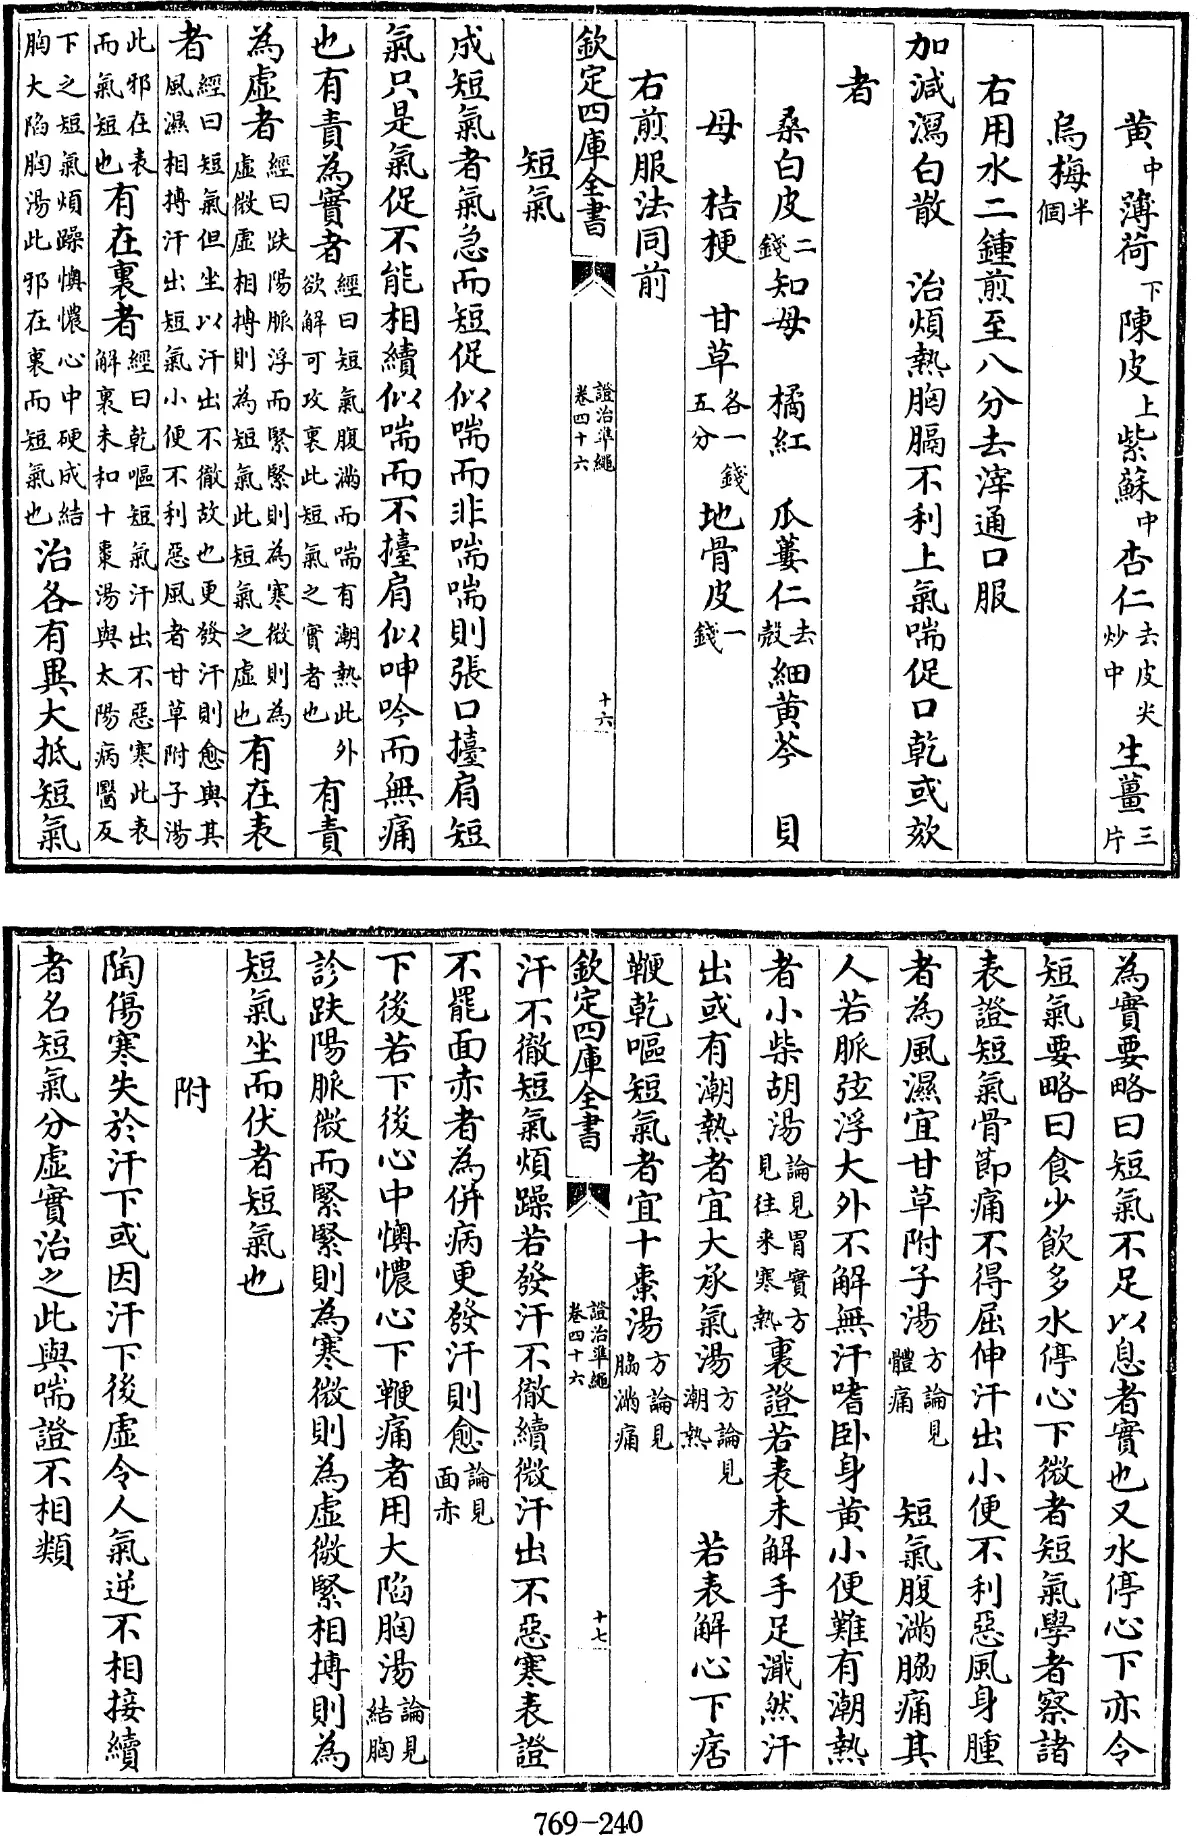 黄中薄荷下陳皮上紫蘇中杏仁去皮尖炒中生薑三片
烏梅半個
右用水二鍾煎至八分去滓通口服
加減瀉白散　治煩熱胸膈不利上氣喘促口乾或欬
者
桑白皮二錢知母　橘紅　瓜蔞仁去殼細黄芩　貝
母　桔梗　甘草各一錢五分地骨皮一錢
右煎服法同前
欽定四庫全書　證治準繩卷四十六　十六
短氣
成短氣者氣急而短促似喘而非喘喘則張口擡肩短
氣只是氣促不能相續似喘而不擡肩似呻吟而無痛
也有責為實者經曰短氣腹滿而喘有潮熱此外欲解可攻裏此短氣之實者也有責
為虛者經曰趺陽脈浮而緊緊則為寒微則為虛微虛相搏則為短氣此短氣之虛也有在表
者經曰短氣但坐以汗出不徹故也更發汗則愈與其風濕相搏汗出短氣小便不利惡風者甘草附子湯
此邪在表而氣短也有在裏者經曰乾嘔短氣汗出不惡寒此表解裏未和十棗湯與太陽病醫反
下之短氣煩躁懊憹心中硬成結胸大陷胸湯此邪在裏而短氣也治各有異大抵短氣
為實要略曰短氣不足以息者實也又水停心下亦令
短氣要略曰食少飲多水停心下微者短氣學者察諸
表證短氣骨節痛不得屈伸汗出小便不利惡風身腫
者為風濕宜甘草附子湯方論見體痛　短氣腹滿脇痛其
人若脈弦浮大外不解無汗嗜卧身黄小便難有潮熱
者小柴胡湯論見胃實方見往來寒熱裏證若表未解手足濈然汗
出或有潮熱者宜大承氣湯方論見潮熱　若表解心下痞
鞕乾嘔短氣者宜十棗湯方論見脇滿痛
欽定四庫全書　證治準繩卷四十六　十七
汗不徹短氣煩躁若發汗不徹續微汗出不惡寒表證
不罷面赤者為併病更發汗則愈論見面赤
下後若下後心中懊憹心下鞕痛者用大陷胸湯論見結胸
診趺陽脈微而緊緊則為寒微則為虛微緊相搏則為
短氣坐而伏者短氣也
附
陶傷寒失於汗下或因汗下後虛令人氣逆不相接續
者名短氣分虛實治之此與喘證不相類
769-240